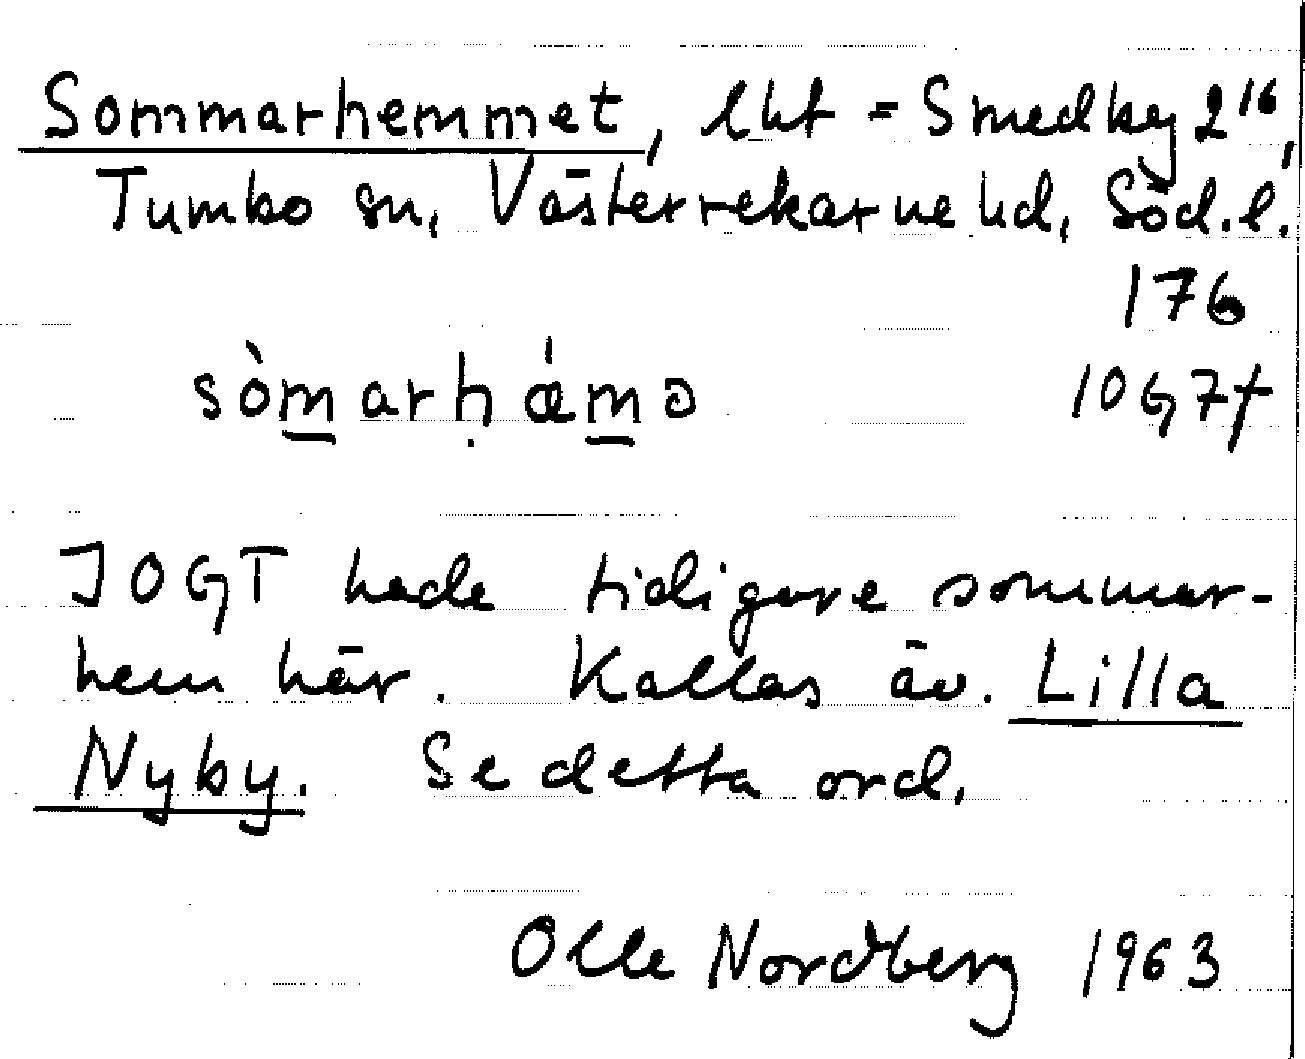 Sommarhemmet, lht = Smedby 2¹⁶,
Tumbo sn, Västerrekarne hd, Söd.l.
176
sòmarhǽmə 10G7f
IOGT hade tidigare sommar-
hem här. Kallas äv. Lilla
Nyby. Se detta ord.
Olle Nordberg 1963